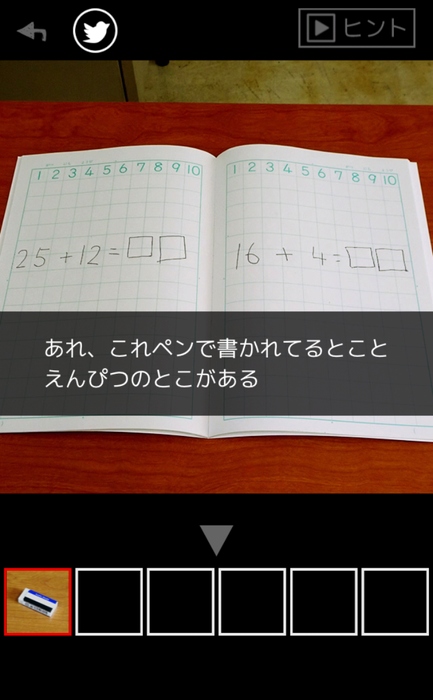 ヒント
1 2 3 4 5 6 7 8 9 10
1 2 3 4 5 6 7 8 9 10
25+12=□□
16+4=□□
あれ、これペンで書かれてるとこと
えんぴつのとこがある